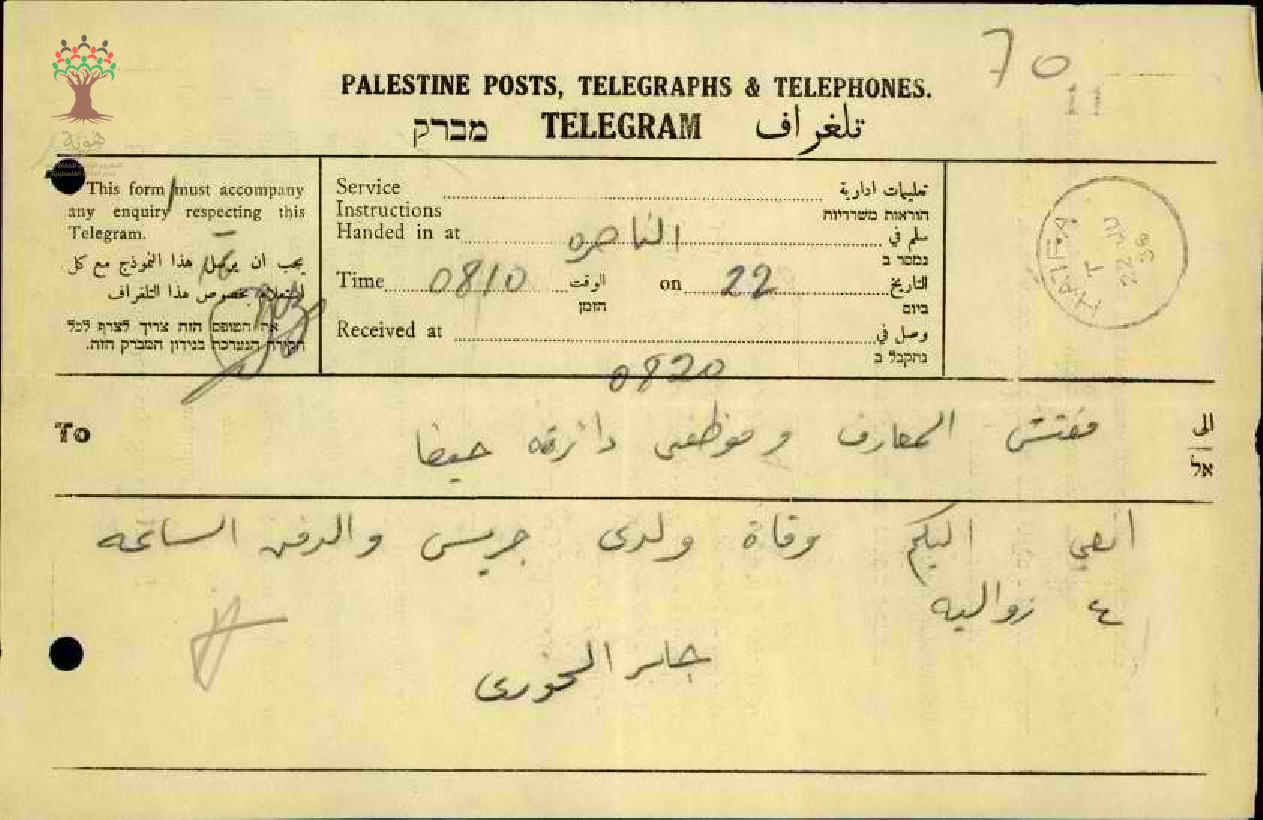 70
11
PALESTINE POSTS, TELEGRAPHS & TELEPHONES.
מברק TELEGRAM تلغراف
هوية
This form must accompany
any enquiry respecting this
Telegram.
يجب ان يرسل هذا النموذج مع كل
استعلام بخصوص هذا التلغراف
את הטופס הזה צריך לצרף לכל
חקירה הנערכת בנידון המברק הזה.
Service تعليمات ادارية
Instructions הוראות משרדיות
Handed in at الناصره سلم في
נמסר ב
Time 0810 الوقت on 22 التاريخ
הזמן ביום
Received at وصل في
0820 נתקבל ב
HAIFA
T
22
39
To مفتش المعارف وموظفى دائرته حيفا الى
אל
انعي اليكم وفاة ولدى جريس والدفن الساعه
٤ زواليه
جابر الخورى